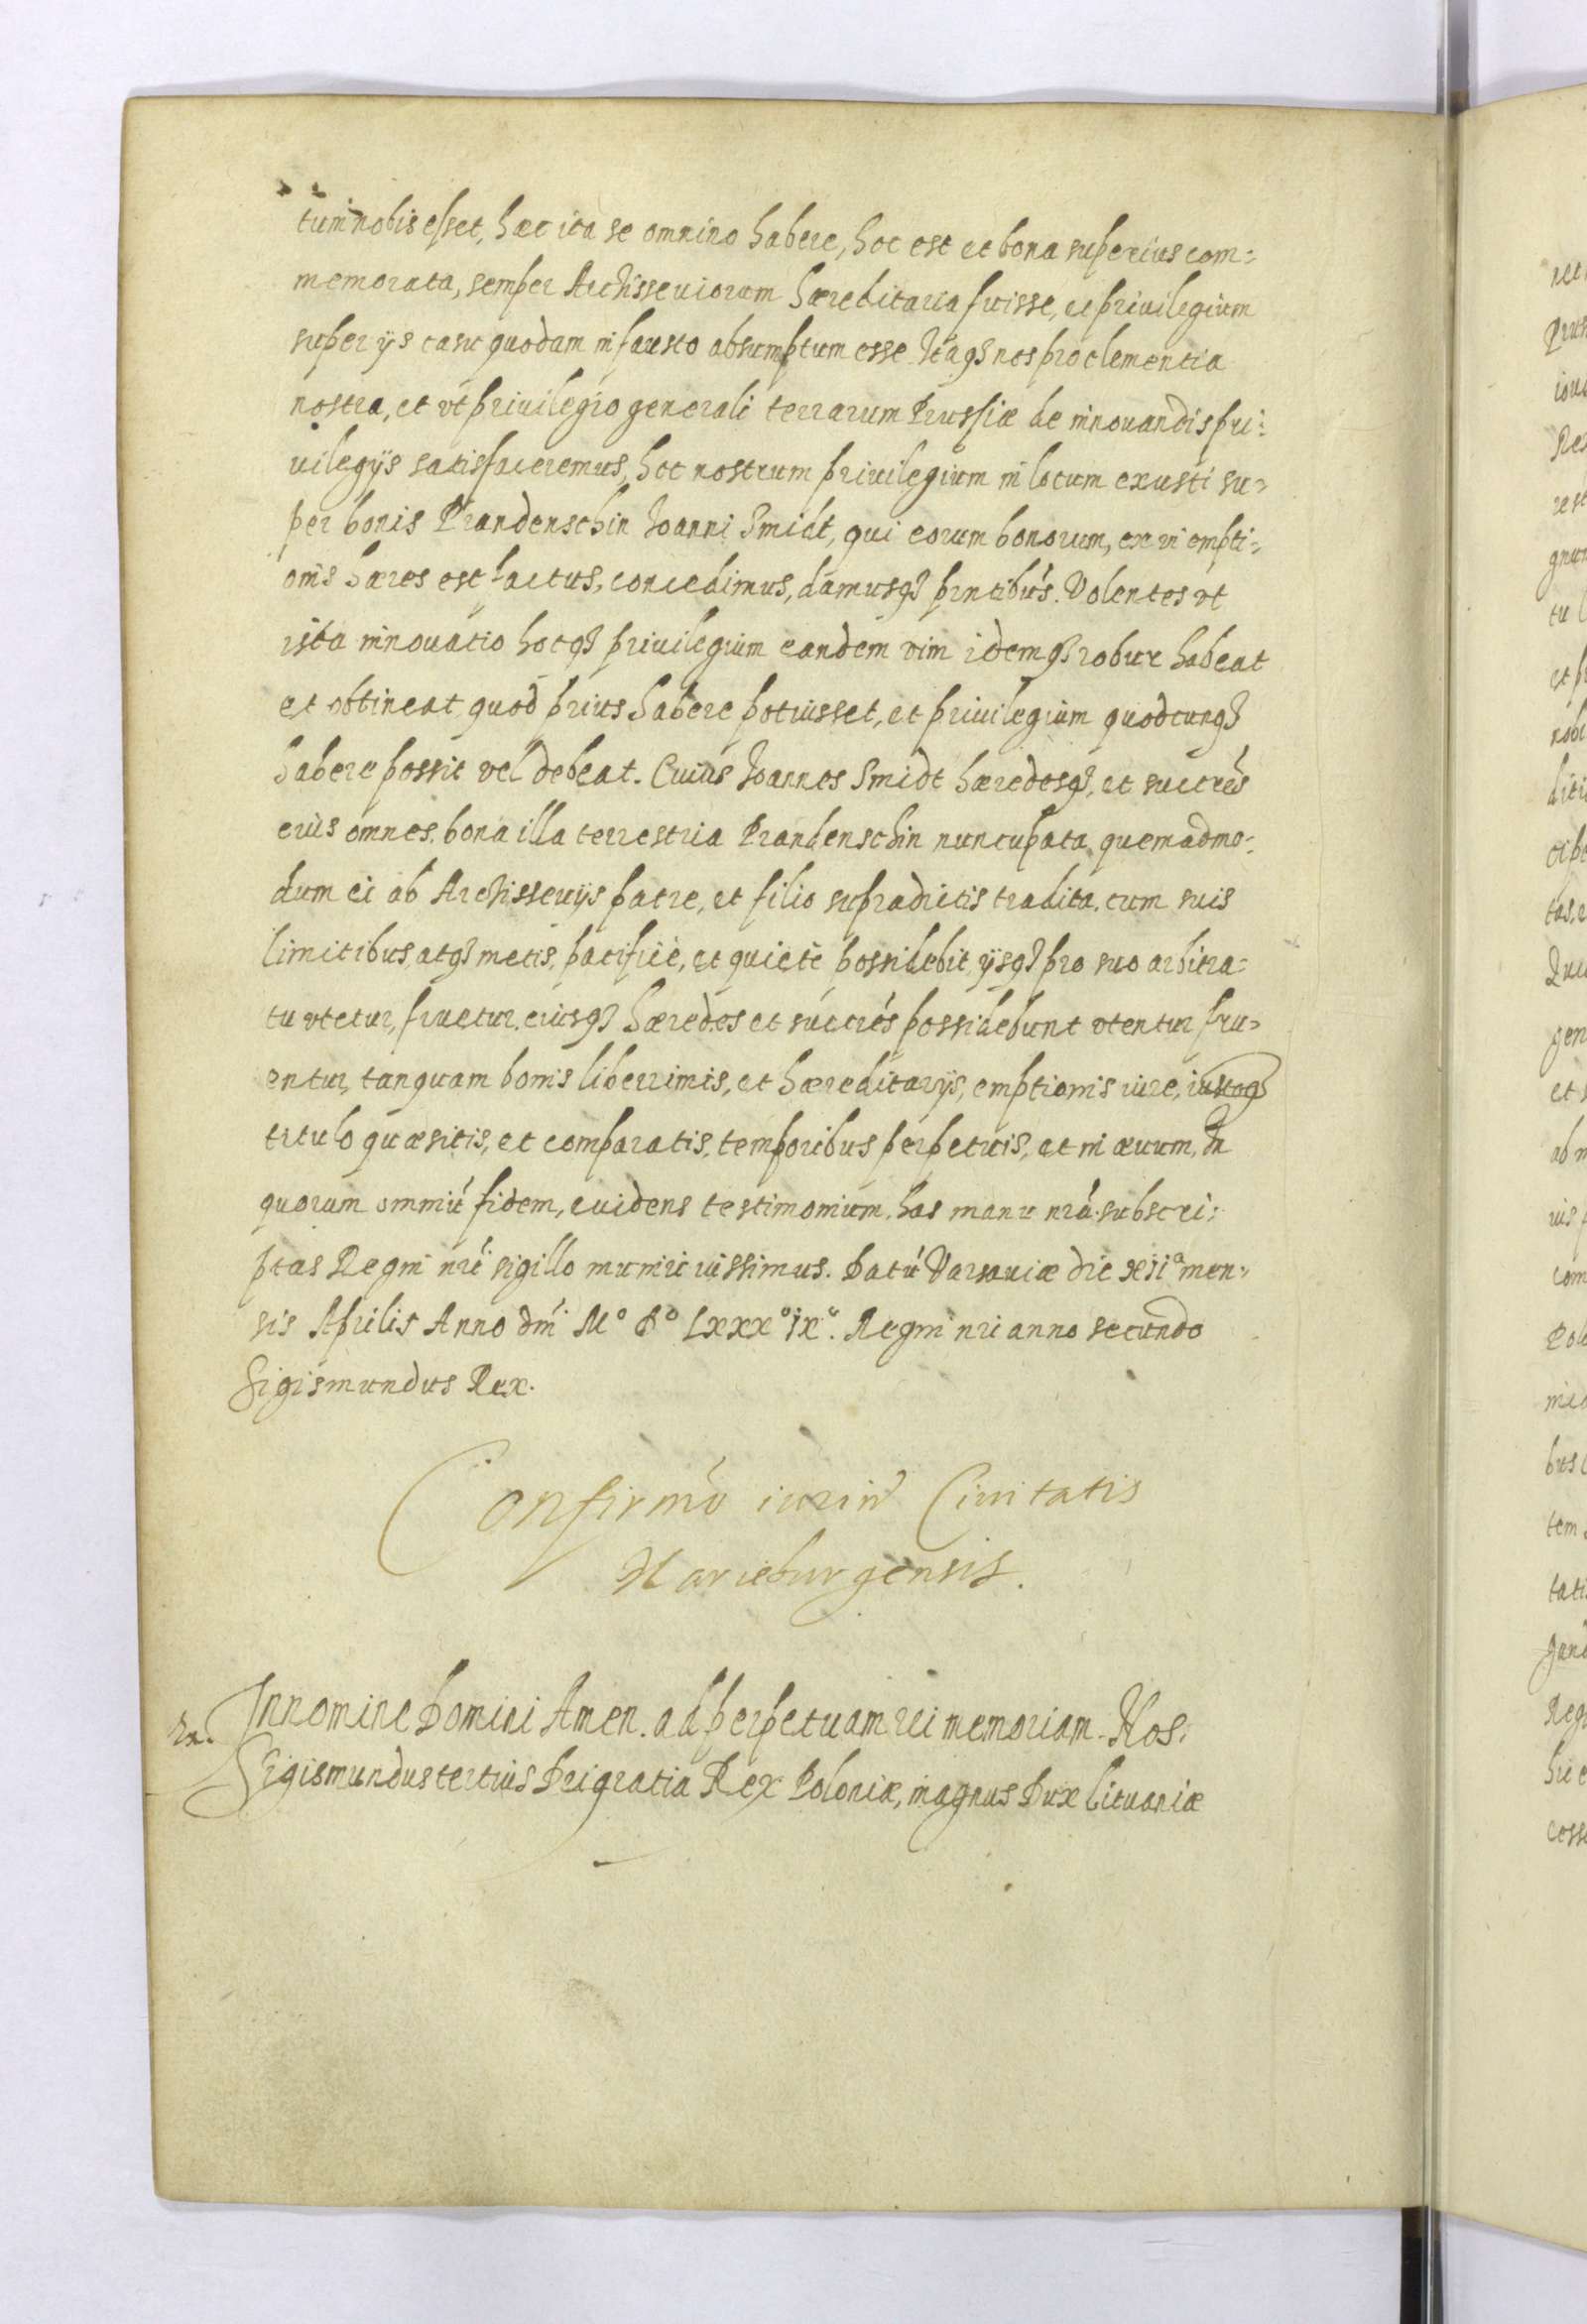 tum nobis esset, hæc ita se omnino habere, hoc est et bona superius com=
memorata, semper Archisseuiorum hæreditaria fuisse, et priuilegium
super ijs casu quodam infausto absumptum esse. Itaq3 nos pro clementia
nostra, et vt priuilegio generali terrarum Prussiæ de innouandis pri=
uilegijs satisfaceremus, hoc nostrum priuilegium in locum exusti su=
per bonis Prandenschin Joanni Smidt, qui eorum bonorum, ex vi empti=
onis hæres est factus, concedimus, damusq3 pntibus. Volentes vt
ista innouatio hocq3 priuilegium eandem vim idemq3 robur habeat
et obtineat quod prius habere potuisset, et priuilegium quodcunq3
habere possit vel debeat. Cuius Joannes Smidt hæredesq3, et succres
eius omnes. bona illa terrestria Prandenschin nuncupata quemadmo=
dum ei ab Archisseuijs patre, et filio supradictis tradita. cum suis
limitibus, atq3 metis, pacificè, et quietè possidebit, ijsq3 pro suo arbitra=
tu vtetur, fruetur. eiusq3 hæredes et succres possidebunt vtentur fru=
entur, tanquam bonis liberrimis, et hæreditarijs, emptionis iure, iustoq3
titulo quæsitis, et comparatis, temporibus perpetuis, et in æuum. In
quorum omniu fidem, euidens testimonium. has manu nra subscri=
ptas Regni nri sigillo muniri iussimus. Datu Varsauiæ die XIIª men=
sis Aprilis Anno dni Mº Dº Lxxxº ixº. Regni nri anno secundo
Sigismundus Rex.
Confirmo iuriu Ciuitatis
Marieburgensis.
In nomine Domini Amen. ad perpetuam rei memoriam. Nos.
Sigismundus tertius Dei gratia Rex Poloniæ, magnus Dux Lituaniæ